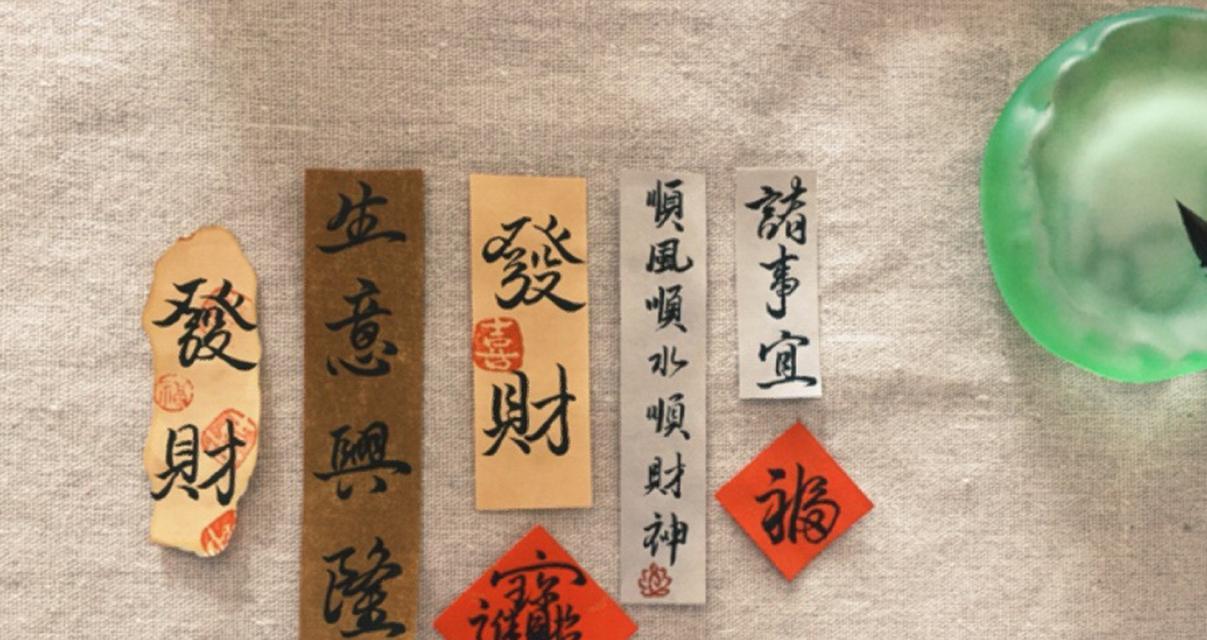 發財
生意興隆
發財
喜
順風順水順財神
諸事宜
福